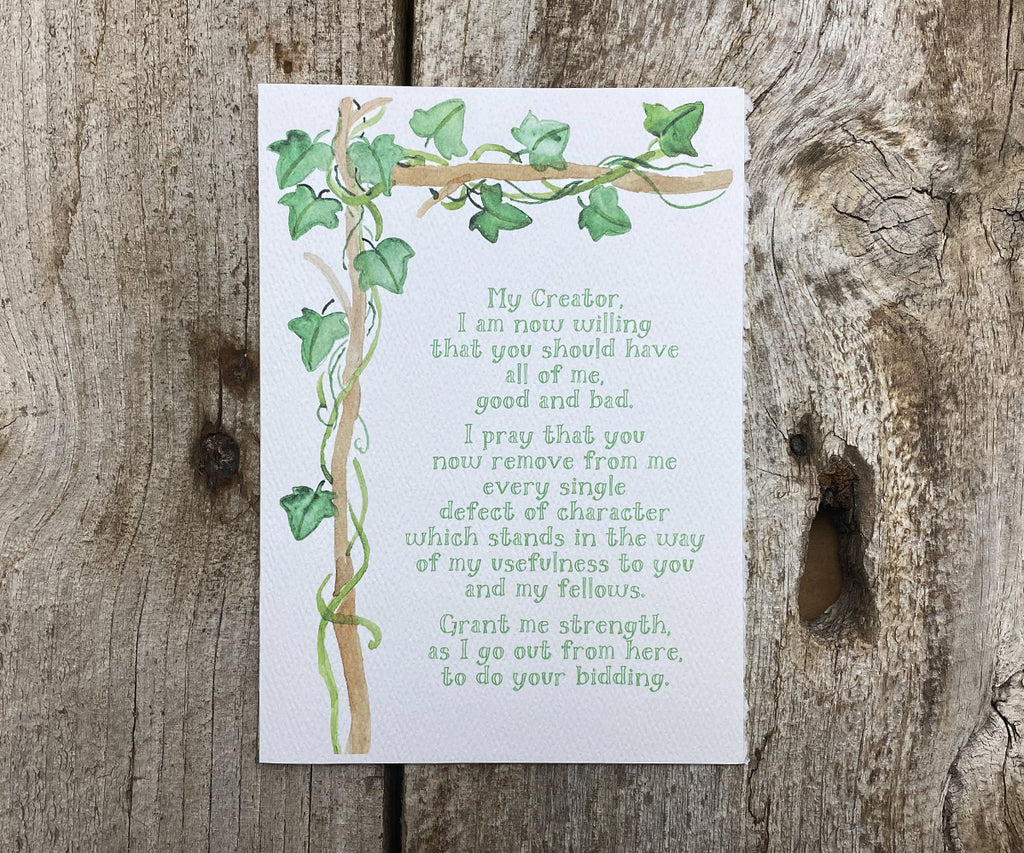 My Creator,
I am now willing
that you should have
all of me,
good and bad.
I pray that you
now remove from me
every single
defect of character
which stands in the way
of my usefulness to you
and my fellows.
Grant me strength,
as I go out from here,
to do your bidding.